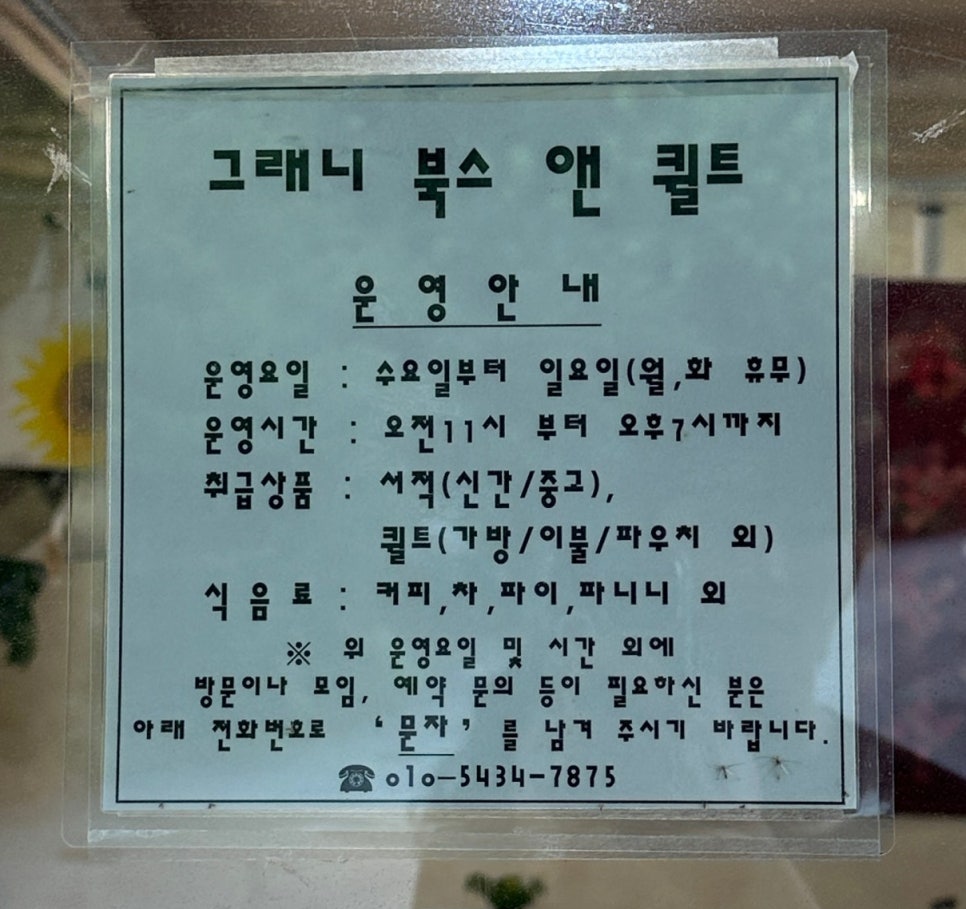 그래니 북스 앤 퀼트
운영안내
운영요일 : 수요일부터 일요일(월,화 휴무)
운영시간 : 오전11시 부터 오후7시까지
취급상품 : 서적(신간/중고),
퀼트(가방/이불/파우치 외)
식음료 : 커피,차,파이,파니니 외
※ 위 운영요일 및 시간 외에
방문이나 모임, 예약 문의 등이 필요하신 분은
아래 전화번호로 ‘문자’를 남겨 주시기 바랍니다.
☎010-5434-7875